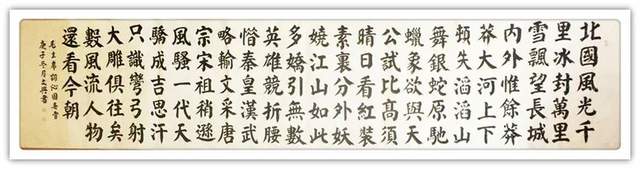 北國風光千
里冰封萬里
雪飄望長城
內外惟餘莽
莽大河上下
頓失滔滔山
舞銀蛇原馳
蠟象欲與天
公試比高須
晴日看紅裝
素裹分外妖
嬈江山如此
多嬌引無數
英雄競折腰
惜秦皇漢武
略輸文采唐
宗宋祖稍遜
風騷一代天
驕成吉思汗
只識彎弓射
大雕俱往矣
數風流人物
還看今朝
毛主席詞沁園春雪
庚子冬月文興書